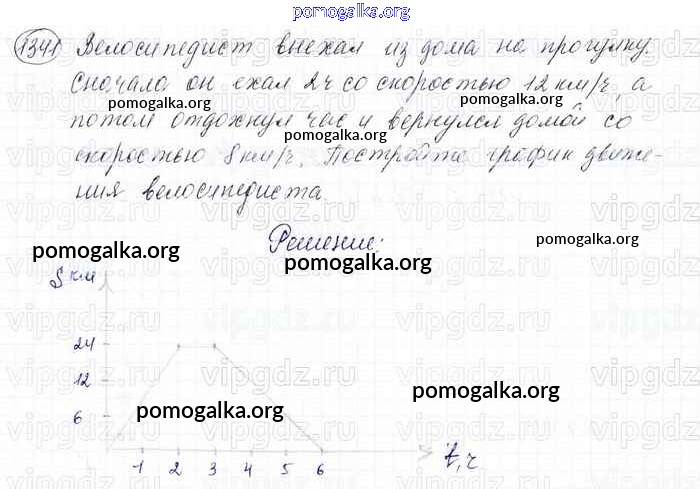 pomogalka.org
1341 Велосипедист выехал из дома на прогулку.
Сначала он ехал 2ч со скоростью 12 км/ч, а
pomogalka.org pomogalka.org
потом отдохнул час и вернулся домой со
pomogalka.org
скоростью 8 км/ч. Постройте график движе-
ния велосипедиста.
pomogalka.org
Решение:
pomogalka.org pomogalka.org pomogalka.org
S км
vipgdz.ru
24
12
6
pomogalka.org pomogalka.org
1 2 3 4 5 6 t, ч